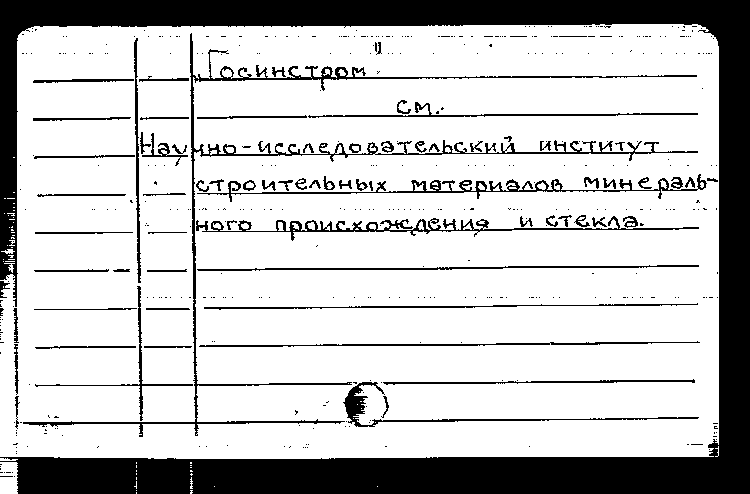 „Госинстром"
см.
Научно-исследовательский институт
строительных материалов минераль-
ного происхождения и стекла.